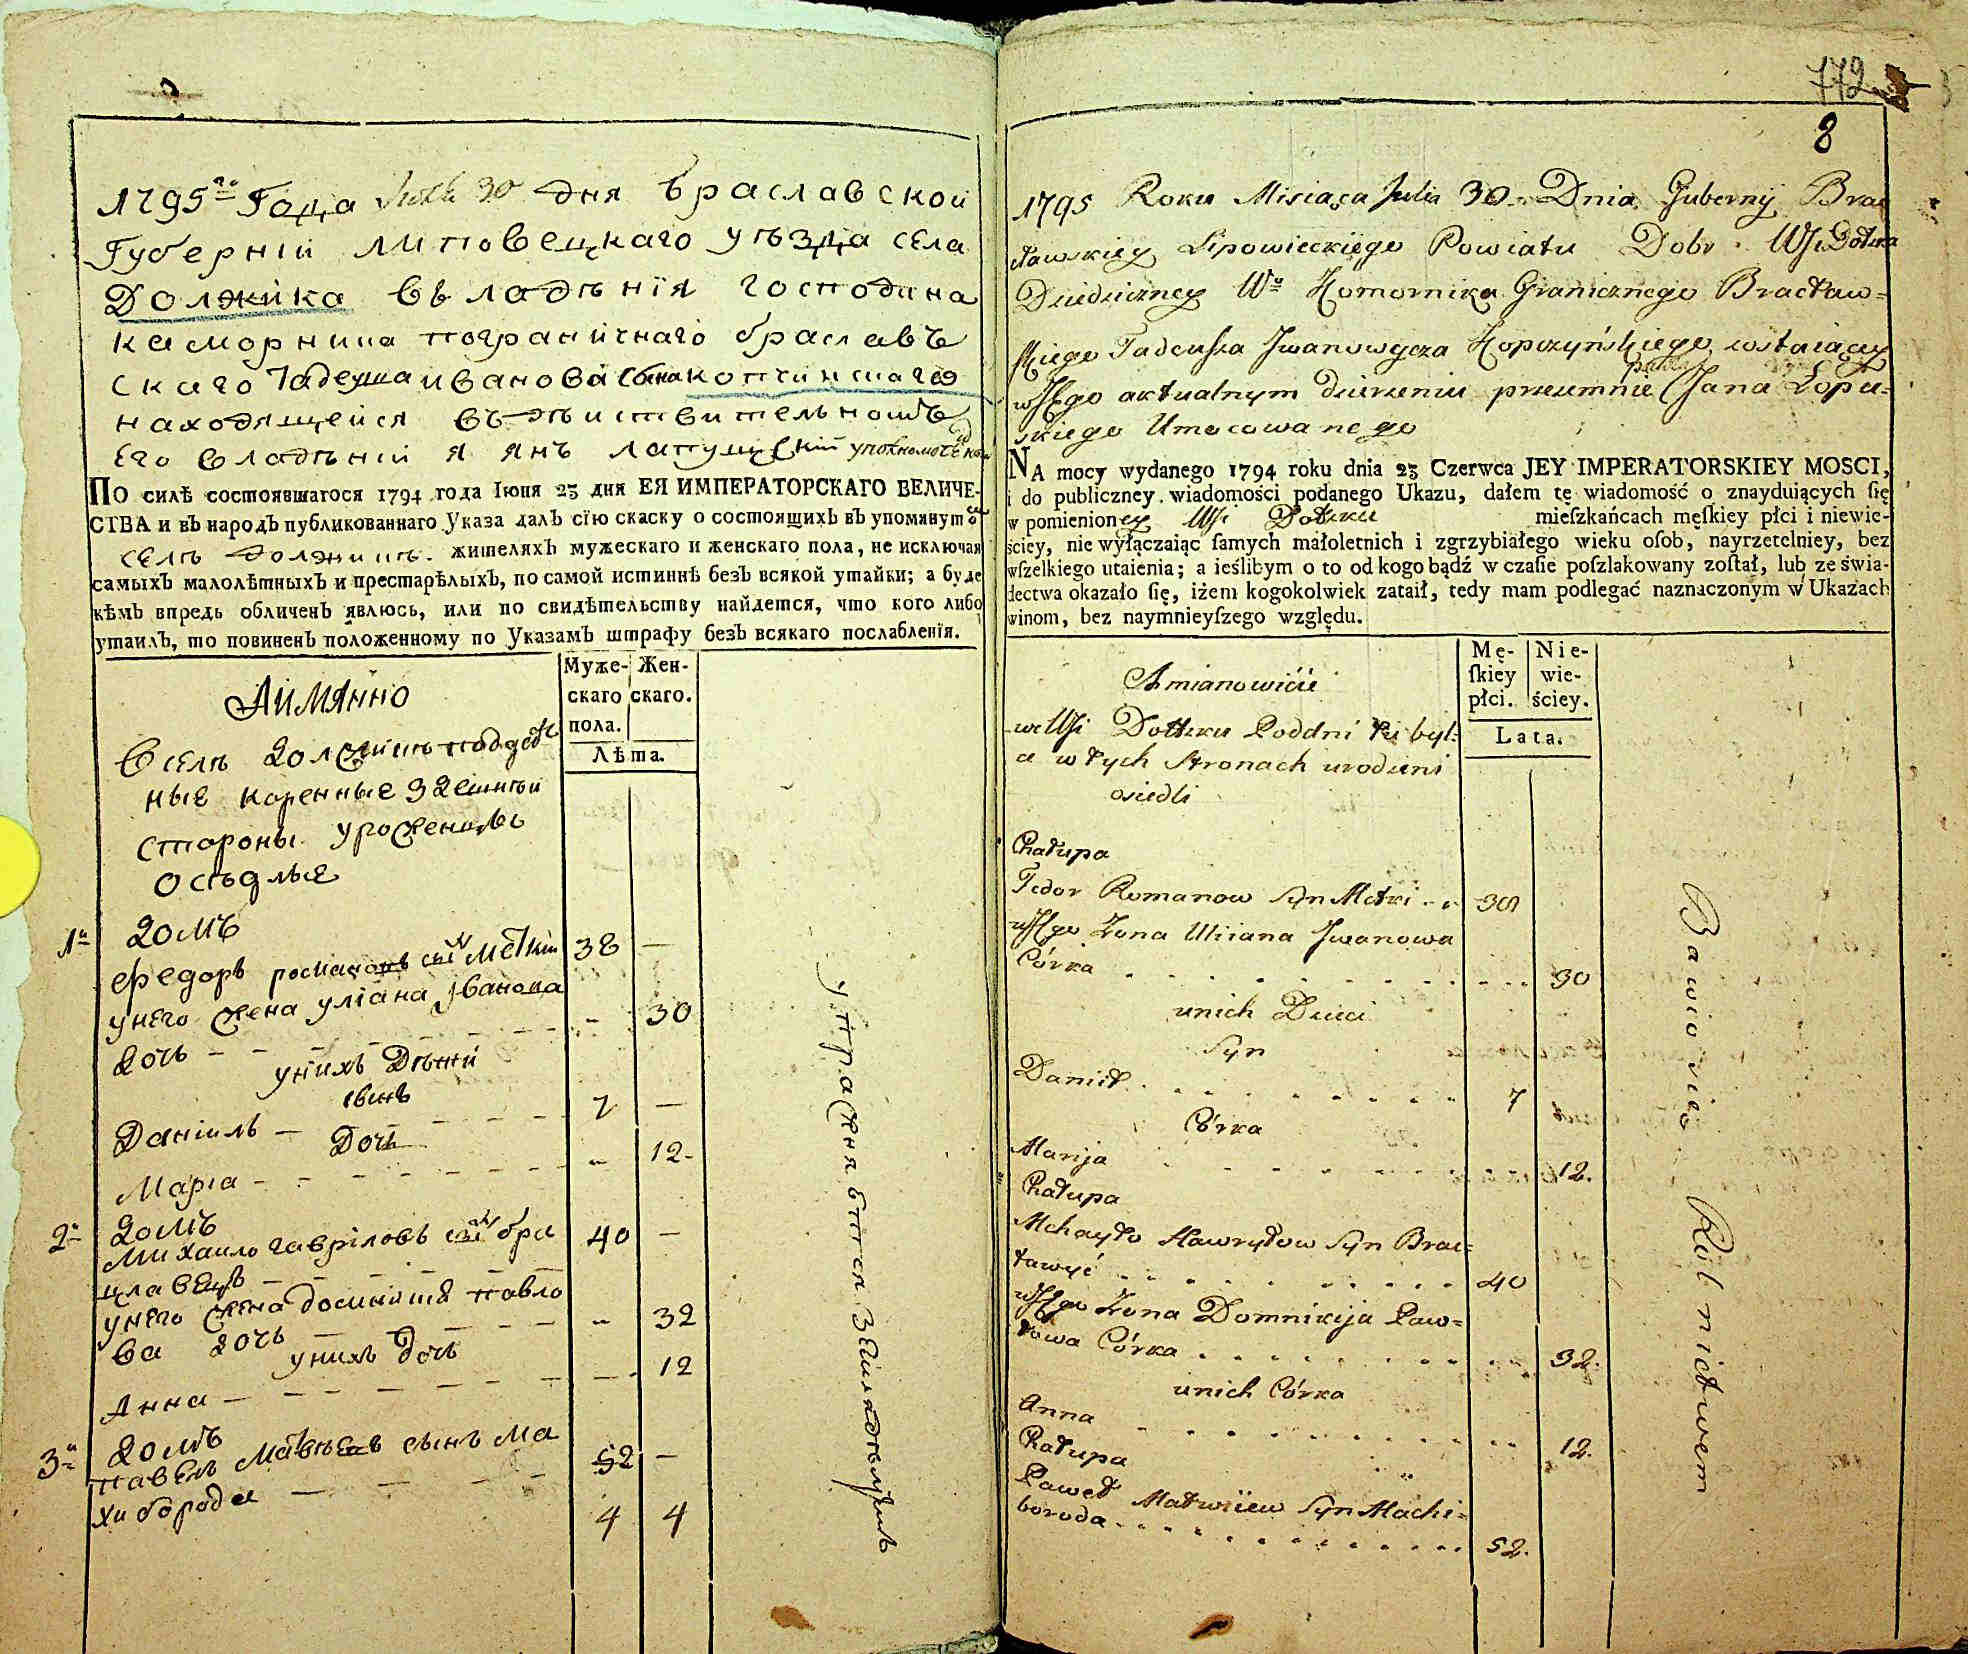 1795го Года Июля 30 дня браславской
Губерніи липовецкаго уѣзда села
Должика владѣнїя господина
каморника пограничнаго браславъ
скаго Тадеуша иванова сына копчинскаго
находящейся въ дѣиствительномъ
его владѣніи я янъ лапушскій уполномоченой
По силѣ состоявшагося 1794 года Іюня 23 дня ЕЯ ИМПЕРАТОРСКАГО ВЕЛИЧЕ-
СТВА и въ народъ публикованнаго Указа далъ сїю скаску о состоящихъ въ упомянутом
селѣ должикѣ. жителяхъ мужескаго и женскаго пола, не исключая
самыхъ малолѣтныхъ и престарѣлыхъ, по самой истиннѣ безъ всякой утайки; а буде
кѣмъ впредь обличенъ явлюсь, или по свидѣтельству найдется, что кого либо
утаилъ, то повиненъ положенному по Указамъ штрафу безъ всякаго послабленїя.
Муже- Жен-
скаго скаго.
пола.
Лѣта.
Аимянно
Вселѣ должикѣ подда
ные коренные здешнѣи
стороны уроженцы
осѣдлые
1й домъ
Федоръ романовъ сынъ меткин 38 —
унего жена улїана иванова
дочь - - - 30
унихъ Дѣти
сынъ
Данїилъ - - - 7 —
Дочь
Марїа - - - 12-
2й домъ
михаило гавриловъ сынъ бра 40 —
цлавецъ
унего жена домникия павло
ва дочь - - - 32
унихъ дочь 12
Анна - - -
3й домъ
павелъ матвѣевъ сынъ ма 52 —
хиборода - - -
4 4
упражняются земледѣлиемъ
772
8
1795 Roku Misiąca Julia 30 Dnia Guberny Brac
ławskiey Lipowieckiego Powiatu Dobr Wsi Dołżka
Dziedziczney Wo Komornika Granicznego Bracław=
skiego Tadeusza Jwanowycza Kopczyńskiego zostaiącey
w Jego aktualnym dzierzeniu przezemnie Jana Łopu-
skiego Umocowanego
NA mocy wydanego 1794 roku dnia 23 Czerwca JEY IMPERATORSKIEY MOSCI,
i do publiczney wiadomości podanego Ukazu, dałem tę wiadomość o znayduiących ſię
w pomienioney Wsi Dołżku mieſzkańcach męſkiey płci i niewie-
ściey, nie wyłączaiąc ſamych małoletnich i zgrzybiałego wieku oſob, nayrzetelniey, bez
wſzelkiego utaienia; a ieślibym o to od kogo bądź w czaſie poſzlakowany zoſtał, lub ze świa-
dectwa okazało ſię, iżem kogokolwiek zataił, tedy mam podlegać naznaczonym w Ukazach
winom, bez naymnieyſzego względu.
Mę- Nie-
ſkiey wie-
płci. ściey.
Lata.
Amianowicie
we Wsi Dołżku Poddni tu byl:
a w tych stronach urodzeni
osiedli
Chałupa
Fedor Romanow Syn Metki 38
w Jego Żona Uliana Jwanowa
Córka 30
unich Dzieci
Syn
Danił 7
Córka
Marija 12.
Chałupa
Mchayło Hawryłow Syn Brac=
ławyć 40
w Jego Żona Domnikija Paw=
łowa Córka 32.
unich Córka
Anna 12.
Chałupa
Paweł Matwiiew Syn Machi=
boroda 52.
Bawio sie Rolnictwem